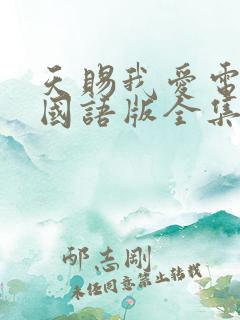 天賜我愛電
國語版全集
邴志剛
未经同意禁止转载